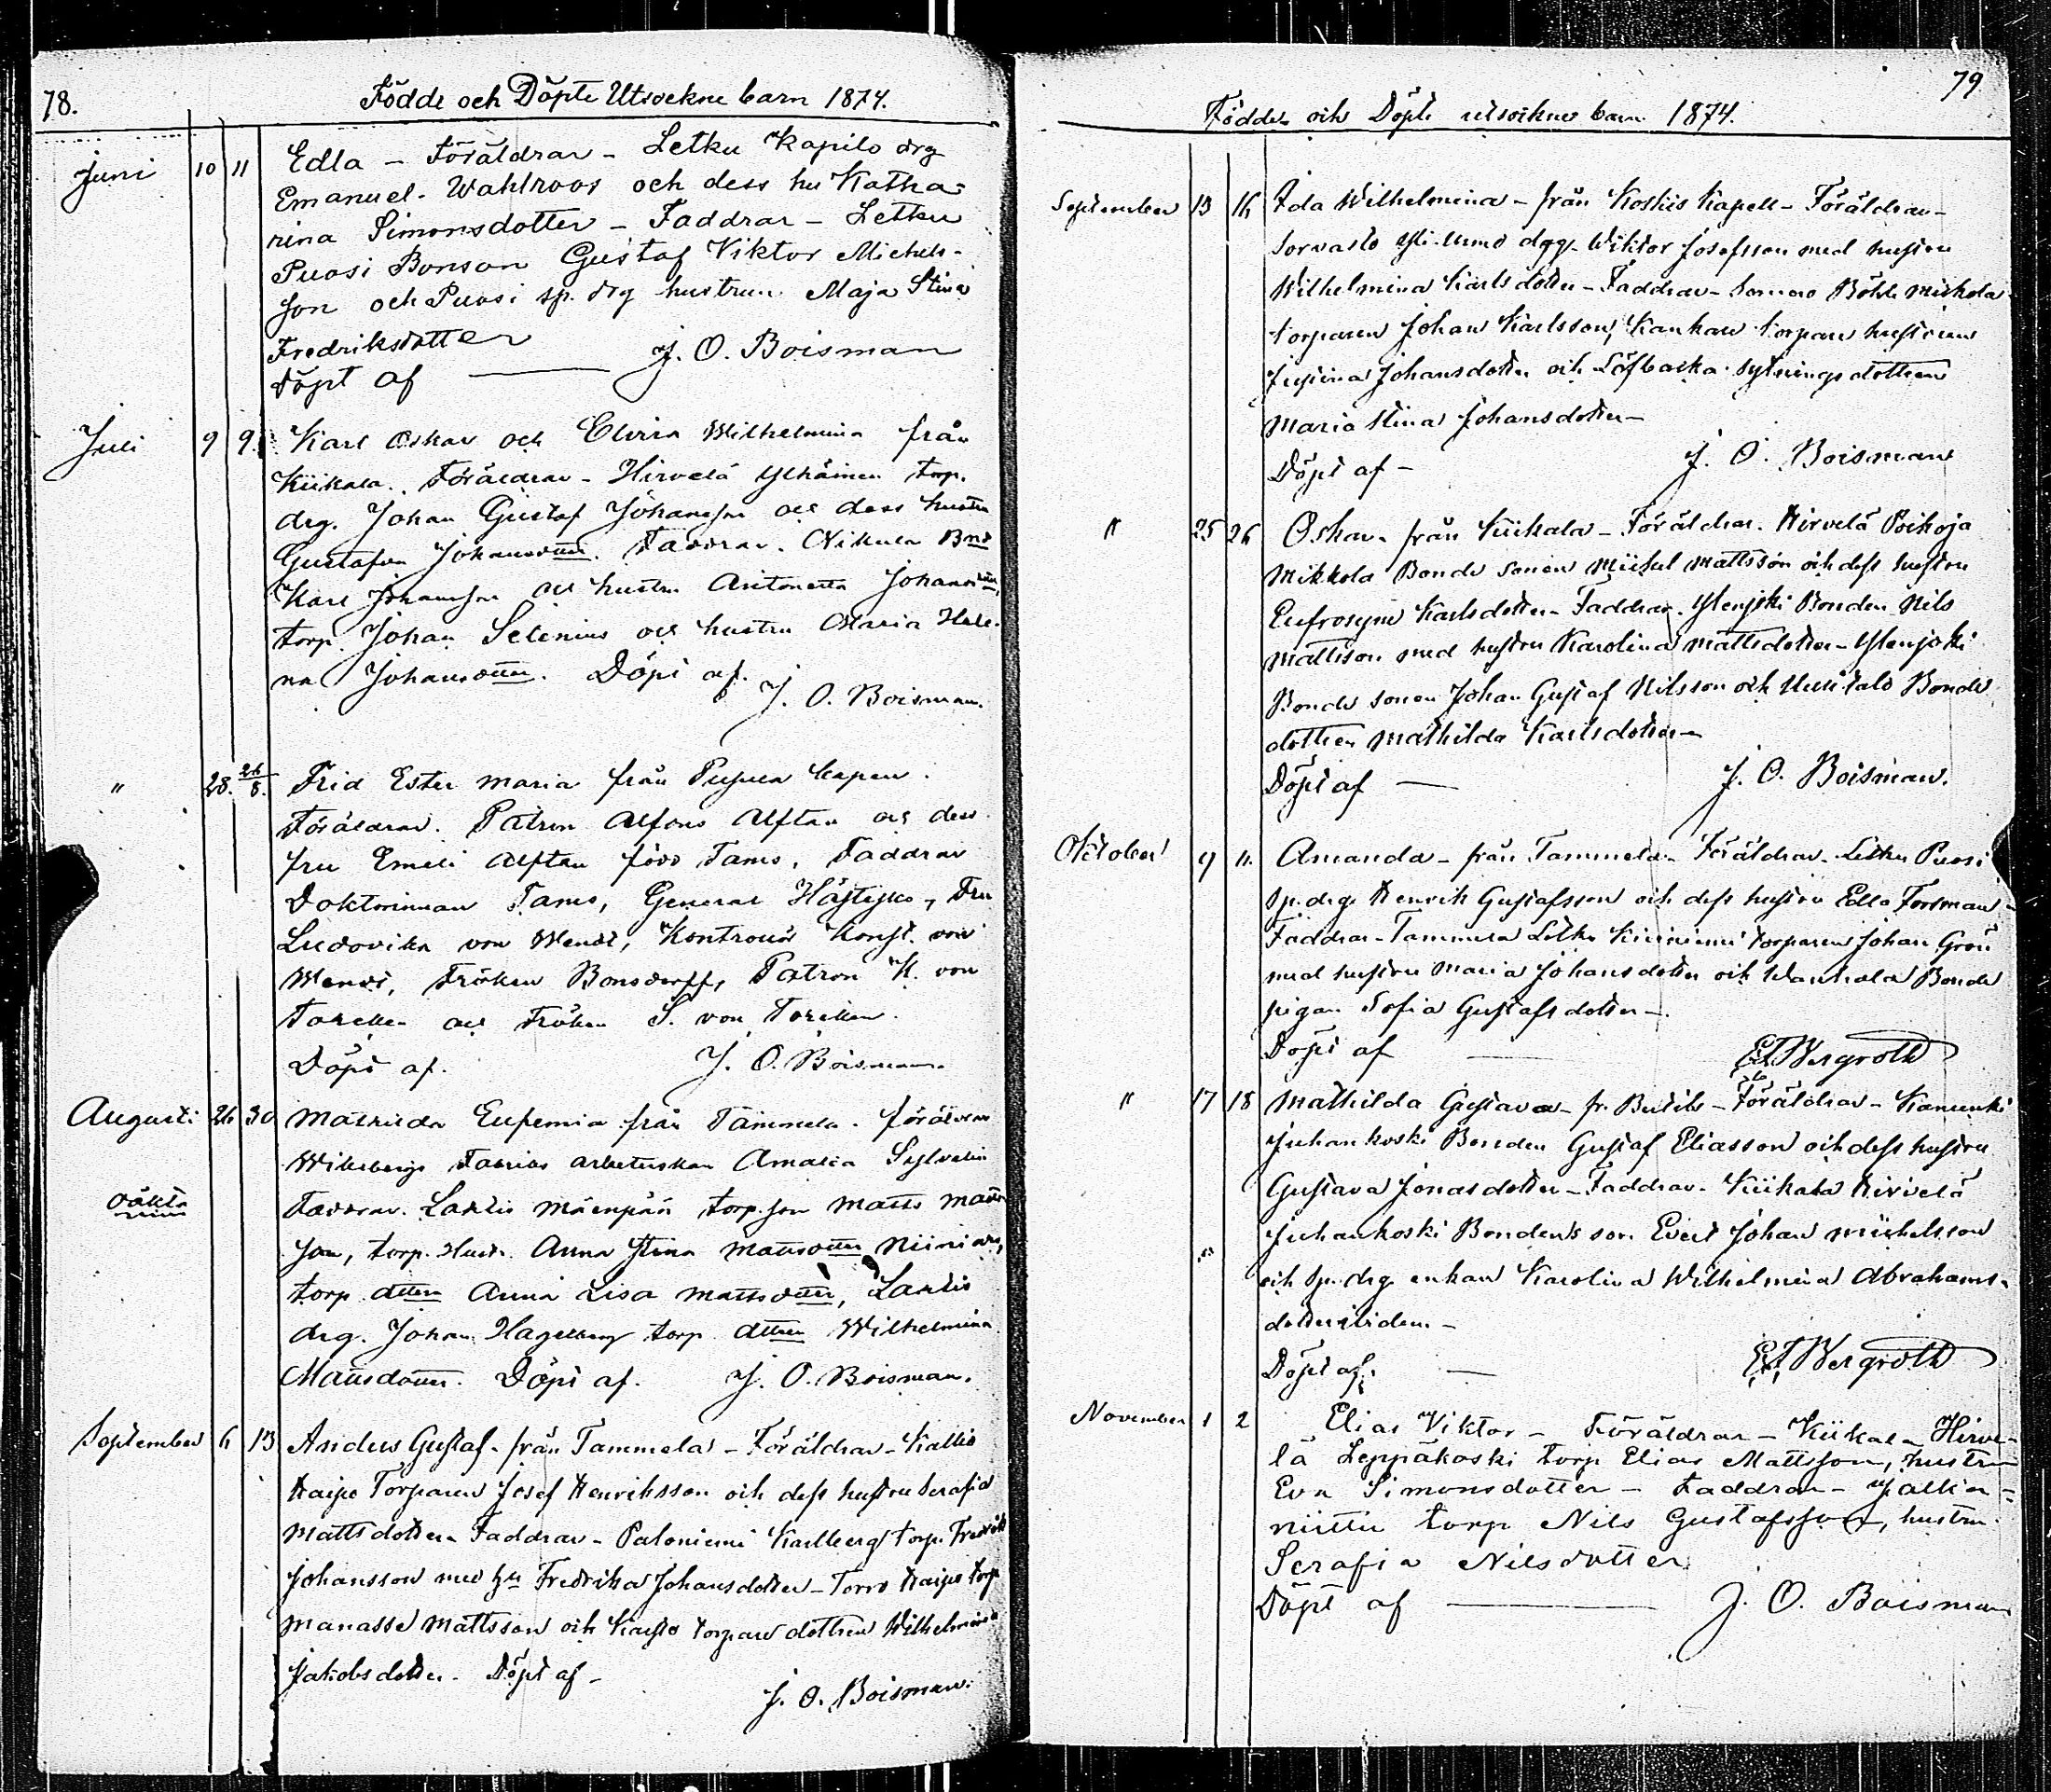 78.
Födde och Döpte Utsockne barn 1874.
Juni 10 11 Edla - Föräldrar - Letku Kapilo drg
Emanuel Wahlroos och dess hu Katha-
rina Simonsdotter - Faddrar - Letku
Puosi Bonson Gustaf Viktor Michels-
son och Puosi sp. drg hustrun Maja Stina
Fredriksdotter
Döpt af J. O. Boisman
Juli 9 9. Karl Oskar och Elvira Wilhelmina från
Kiikala. Föräldrar - Hirvelä Ylhäinen torp.
drg. Johan Gustaf Johansson och dess hustru
Gustafva Johansdtter. Faddrar. Nikula Bnd
Karl Johansson och hustru Antonetta Johansdtter,
torp. Johan Selenius och hustru Maria Hele-
na Johansdtter. Döpt af.
J. O. Boisman.
" 28. 26/8. Frid Ester Maria från Pusula kapell.
Föräldrar. Patron Alfons Alftan och dess
fru Emeli Alftan född Tams, Faddrar
Doktorinnan Tams, General , Fru
Ludovika von Wendt, Kontrollör Konst. von
Wendt, Fröken Bonsdorff, Patron K. von
och Fröken S. von
Döpt af. J. O. Boisman.
Augusti 26 30 Mathilda Eufemia från Tammela. föräldrar
Wiksbergs Fabriks arbeterskan Amalia Sylvelin
oäkta
Faddrar. Laulis Mäenpää torp. son Matts Matts
son, torp. Hustr. Anna Stina Mattsdtter
torp. dttren Anna Lisa Mattsdtter, Laulis
drg. Johan Hagelberg torp. dttren Wilhelmina
Mattsdotter. Döpt af. J. O. Boisman.
September 6 13 Anders Gustaf - från Tammela - Föräldrar - Kallio
Haipo Torparen Josef Henriksson och dess hustru Serafia
Mattsdotter - Faddrar - Paloniemi Karlberg torp. Fredrik
Johansson med hu Fredrika Johansdotter - Torro Haipo torp
Manasse Mattsson och torpare dottren Wilhelmina
Jakobsdotter. Döpt af -
J. O. Boisman.
79
Födde och Döpte utsockne barn 1874.
September 13 16 Ida Wilhelmina - från Koskis Kapell - Föräldrar -
Sorvasto drg. Wiktor Josefsson med hustru
Wilhelmina Karlsdotter - Faddrar - Somero
torparen Johan Karlsson, torpare hustrun
Justina Johansdotter och Löfbacka sytningsdottren
Maria Stina Johansdotter -
Döpt af - J. O. Boisman
" 25 26 Oskar - från Kiikala - Föräldrar. Hirvelä Poikoja
Mikkola Bonde sonen Michel Mattsson och dess hustru
Eufrosyne Karlsdotter - Faddrar. Ylenjoki Bonden Nils
Mattsson med hustru Karolina Mattsdotter - Ylenjoki
Bonde sonen Johan Gustaf Nilsson och Uusitalo Bonde
dottren Mathilda Karlsdotter -
Döpt af J. O. Boisman.
Oktober 9 11. Amanda - från Tammela - Föräldrar - Letku Puosi
sp. drg. Henrik Gustafsson och dess hustru Edla Forsman -
Faddrar - Tammela Letku Kiiniemi torparen Johan Grön
med hustru Maria Johansdotter och Wanhala Bonde
pigan Sofia Gustafsdotter -.
Döpt af Bergroth
" 17 18 Mathilda Gustava - fr. Bertils - Föräldrar -
Juhankoski Bonden Gustaf Eliasson och dess hustru
Gustava Jonasdotter - Faddrar - Kiikala Hirvelä
Juhankoski Bondens son Evert Johan Michelsson
och sp. drg. enkan Karolina Wilhelmina Abrahams-
dotter ibidem. -
Döpt af. Bergroth
November 1 2 Elias Viktor - Föräldrar - Kiikala Hirve-
lä Leppäkoski torp Elias Mattsson, hustru
Eva Simonsdotter - Faddrar - Jallia-
niittu torp Nils Gustafsson, hustru
Serafia Nilsdotter
Döpt af J. O. Boisman